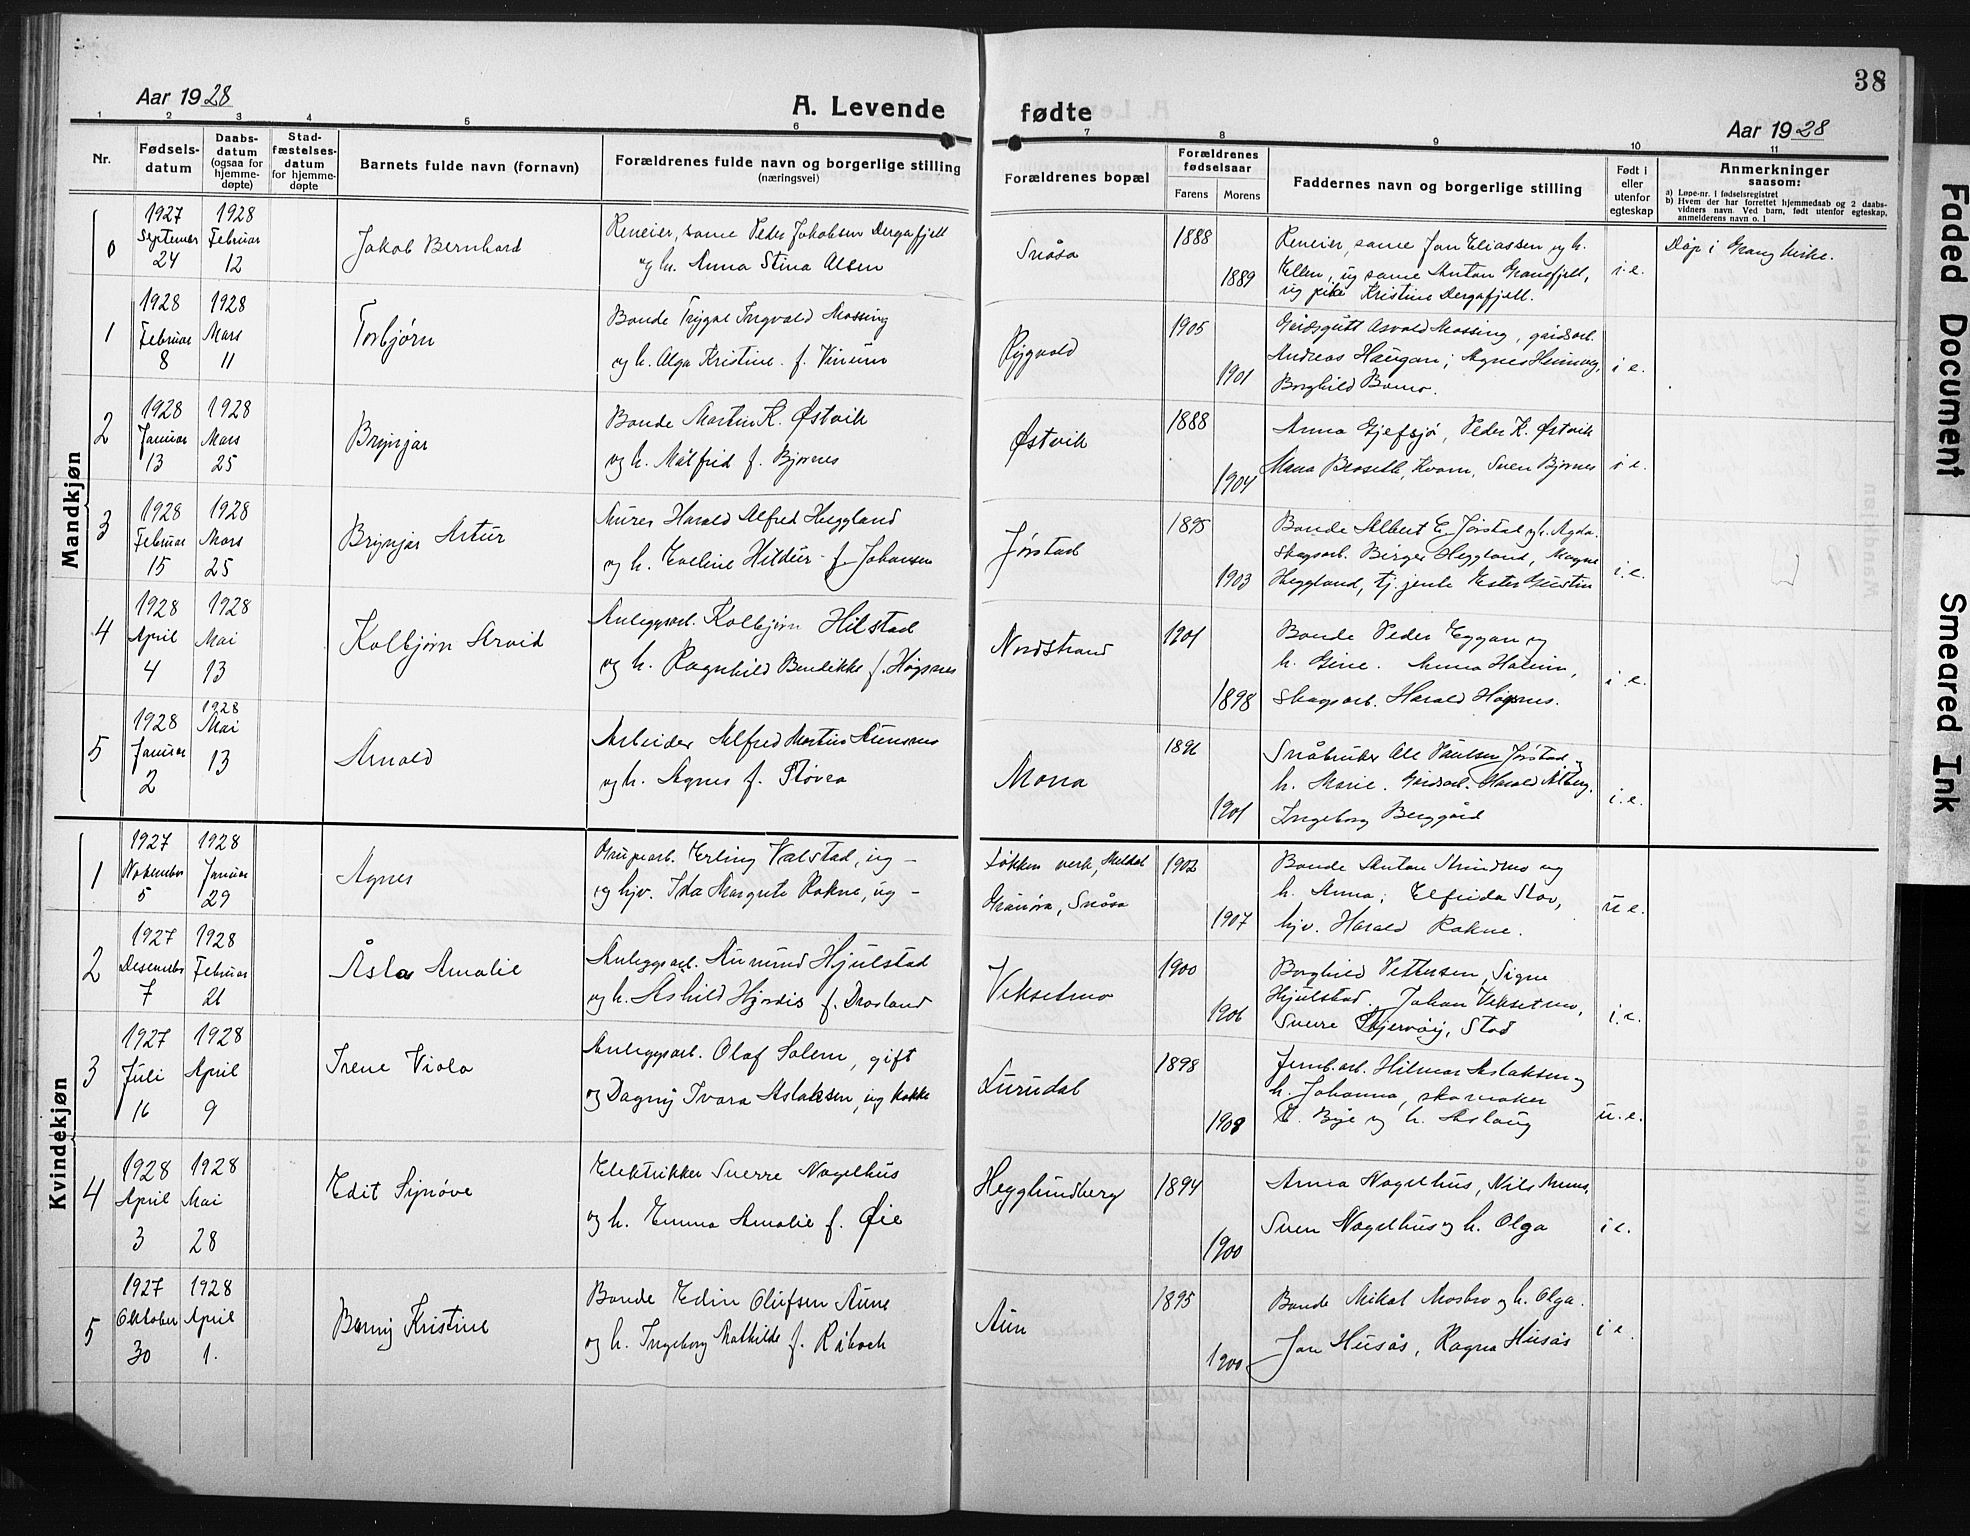 38
Aar 1928
A. Levende fødte
Aar 1928
1 2 3 4 5 6 7 8 9 10 11
Nr.
Fødsels-
datum
Daabs-
datum
(ogsaa for
hjemme-
døpte)
Stad-
fæstelses-
datum
for hjemme-
døpte
Barnets fulde navn (fornavn)
Forældrenes fulde navn og borgerlige stilling
(næringsvei)
Forældrenes bopæl
Forældrenes
fødselsaar
Farens
Morens
Faddernes navn og borgerlige stilling
Født i
eller
utenfor
egteskap
Anmerkninger
saasom:
a) Løpe-nr. i fødselsregistret
b) Hvem der har forrettet hjemmedaab og 2 daabs-
vidners navn. Ved barn, født utenfor egteskap,
anmelderens navn o. l
Mandkjøn
0
1927
September
24
1928
Februar
12
Jakob Bernhard
Reneier, same Peder Jakobsen Dergafjell
og h. Anna Stina Alsen
Snåsa
1888
1889
Reneier, same Jon Eliassen og h.
Ellen, ug same Anton Granefjell,
ug pike Kristine Dergafjell.
i. e.
Døp i Grong kirke.
1
1928
Februar
8
1928
Mars
11
Torbjørn
Bonde Trygve Ingvald Mossing
og h. Alga Kristine f. Vinum
1905
1901
Gårdsgutt Asvald Mossing, gårdsarb.
Andreas Haugan; Agnes
Borghild
i e.
2
1928
Januar
13
1928
Mars
25
Brynjar
Bonde Martin K. Østvik
og h. Målfrid f. Bjørnes
Østvik
1888
1904
Anna Gjefsjø, Peder K. Østvik
Kvam, Sven Bjørnes
i e.
3
1928
Februar
15
1928
Mars
25
Brynjar Artur
Murer Harald Alfred Heggland
og h. Eveline Hildur f. Johansen
Jørstad
1895
1903
Bonde Albert E. Jørstad og h. Agda.
Skogsarb. Birger Heggland, Magne
Heggland, tj. jente Ester
i. e.
4
1928
April
4
1928
Mai
13
Kolbjørn Arvid
Anleggsarb. Kolbjørn Hilstad
og h. Ragnhild Bendikke f. Høgsnes
Nordstrand
1901
1898
Bonde Peder Eggan og
h. Gine. Anna
Skogsarb. Harald Høgsnes.
i e.
5
1928
Januar
2
1928
Mai
13
Arnold
Arbeider Alfred Martin
og h. Agnes f. Støvra
Mona
1896
1901
Småbruker Ole Paulsen Jørstad og
h. Marie. Gårdsarb. Harald
Ingeborg Berggård
i. e.
Kvindekjøn
1
1927
November
5
1928
Januar
29
Agnes
Grubearb. Erling Valstad, ug –
og hjv. Ida Margrete Rokne, ug –
Løkken verk, Meldal
Granøra, Snåsa
1902
1907
Bonde Anton og
h. Anna; Elfrida
hjv. Harald Rokne.
u e.
2
1927
Desember
7
1928
Februar
26
Åsla Amalie
Anleggsarb. Aumund Hjulstad
og h. Ashild Hjørdis f.
Veksetmo
1900
1906
Borghild Pettersen, Signe
Hjulstad. Johan Veksetmo,
Sverre Skjervøy, Stod
i. e.
3
1927
Juli
16
1928
April
9
Irene Viola
Anleggsarb. Olaf Solem, gift
og Dagny Ivara Aslaksen, ug kokke
Lurudal
1898
1908
Jernb.arb. Hilmar Aslaksen og
h. Johanna, skomaker
Bye og h. Aslaug
u. e.
4
1928
April
3
1928
Mai
28
Edit Synøve
Elektrikker Sverre Nagelhus
og h. Emma Amalie f. Øie
Hegglundberg
1894
1900
Anna Nagelhus, Nils
Sven Nagelhus og h. Olga
i e.
5
1927
Oktober
30
1928
April
1.
Borny Kristine
Bonde Edin Olufsen Aune
og h. Ingeborg Mathilde f.
Aun
1895
1900
Bonde Mikal Mosbro og h. Olga.
Jon Husås, Ragna Husås
i e.
Faded Document
Smeared Ink